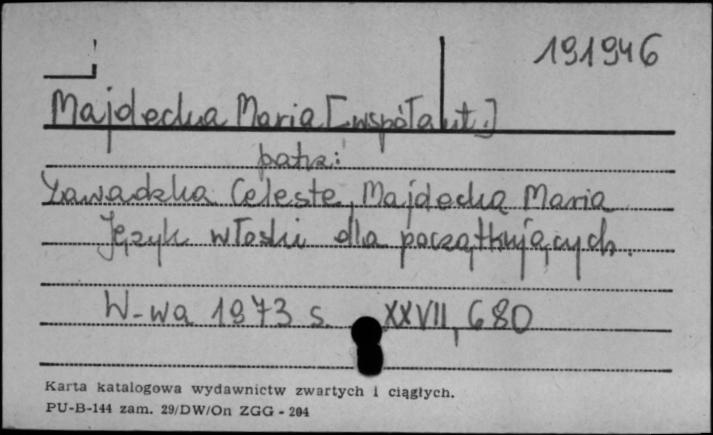 191946
Majdecka Maria [współaut.]
patrz:
Zawadzka Celeste, Majdecka Maria
Język włoski dla początkujących.
W-wa 1973 s. XXVII, 680
Karta katalogowa wydawnictw zwartych i ciągłych.
PU-B-144 zam. 29/DW/On ZGG - 204